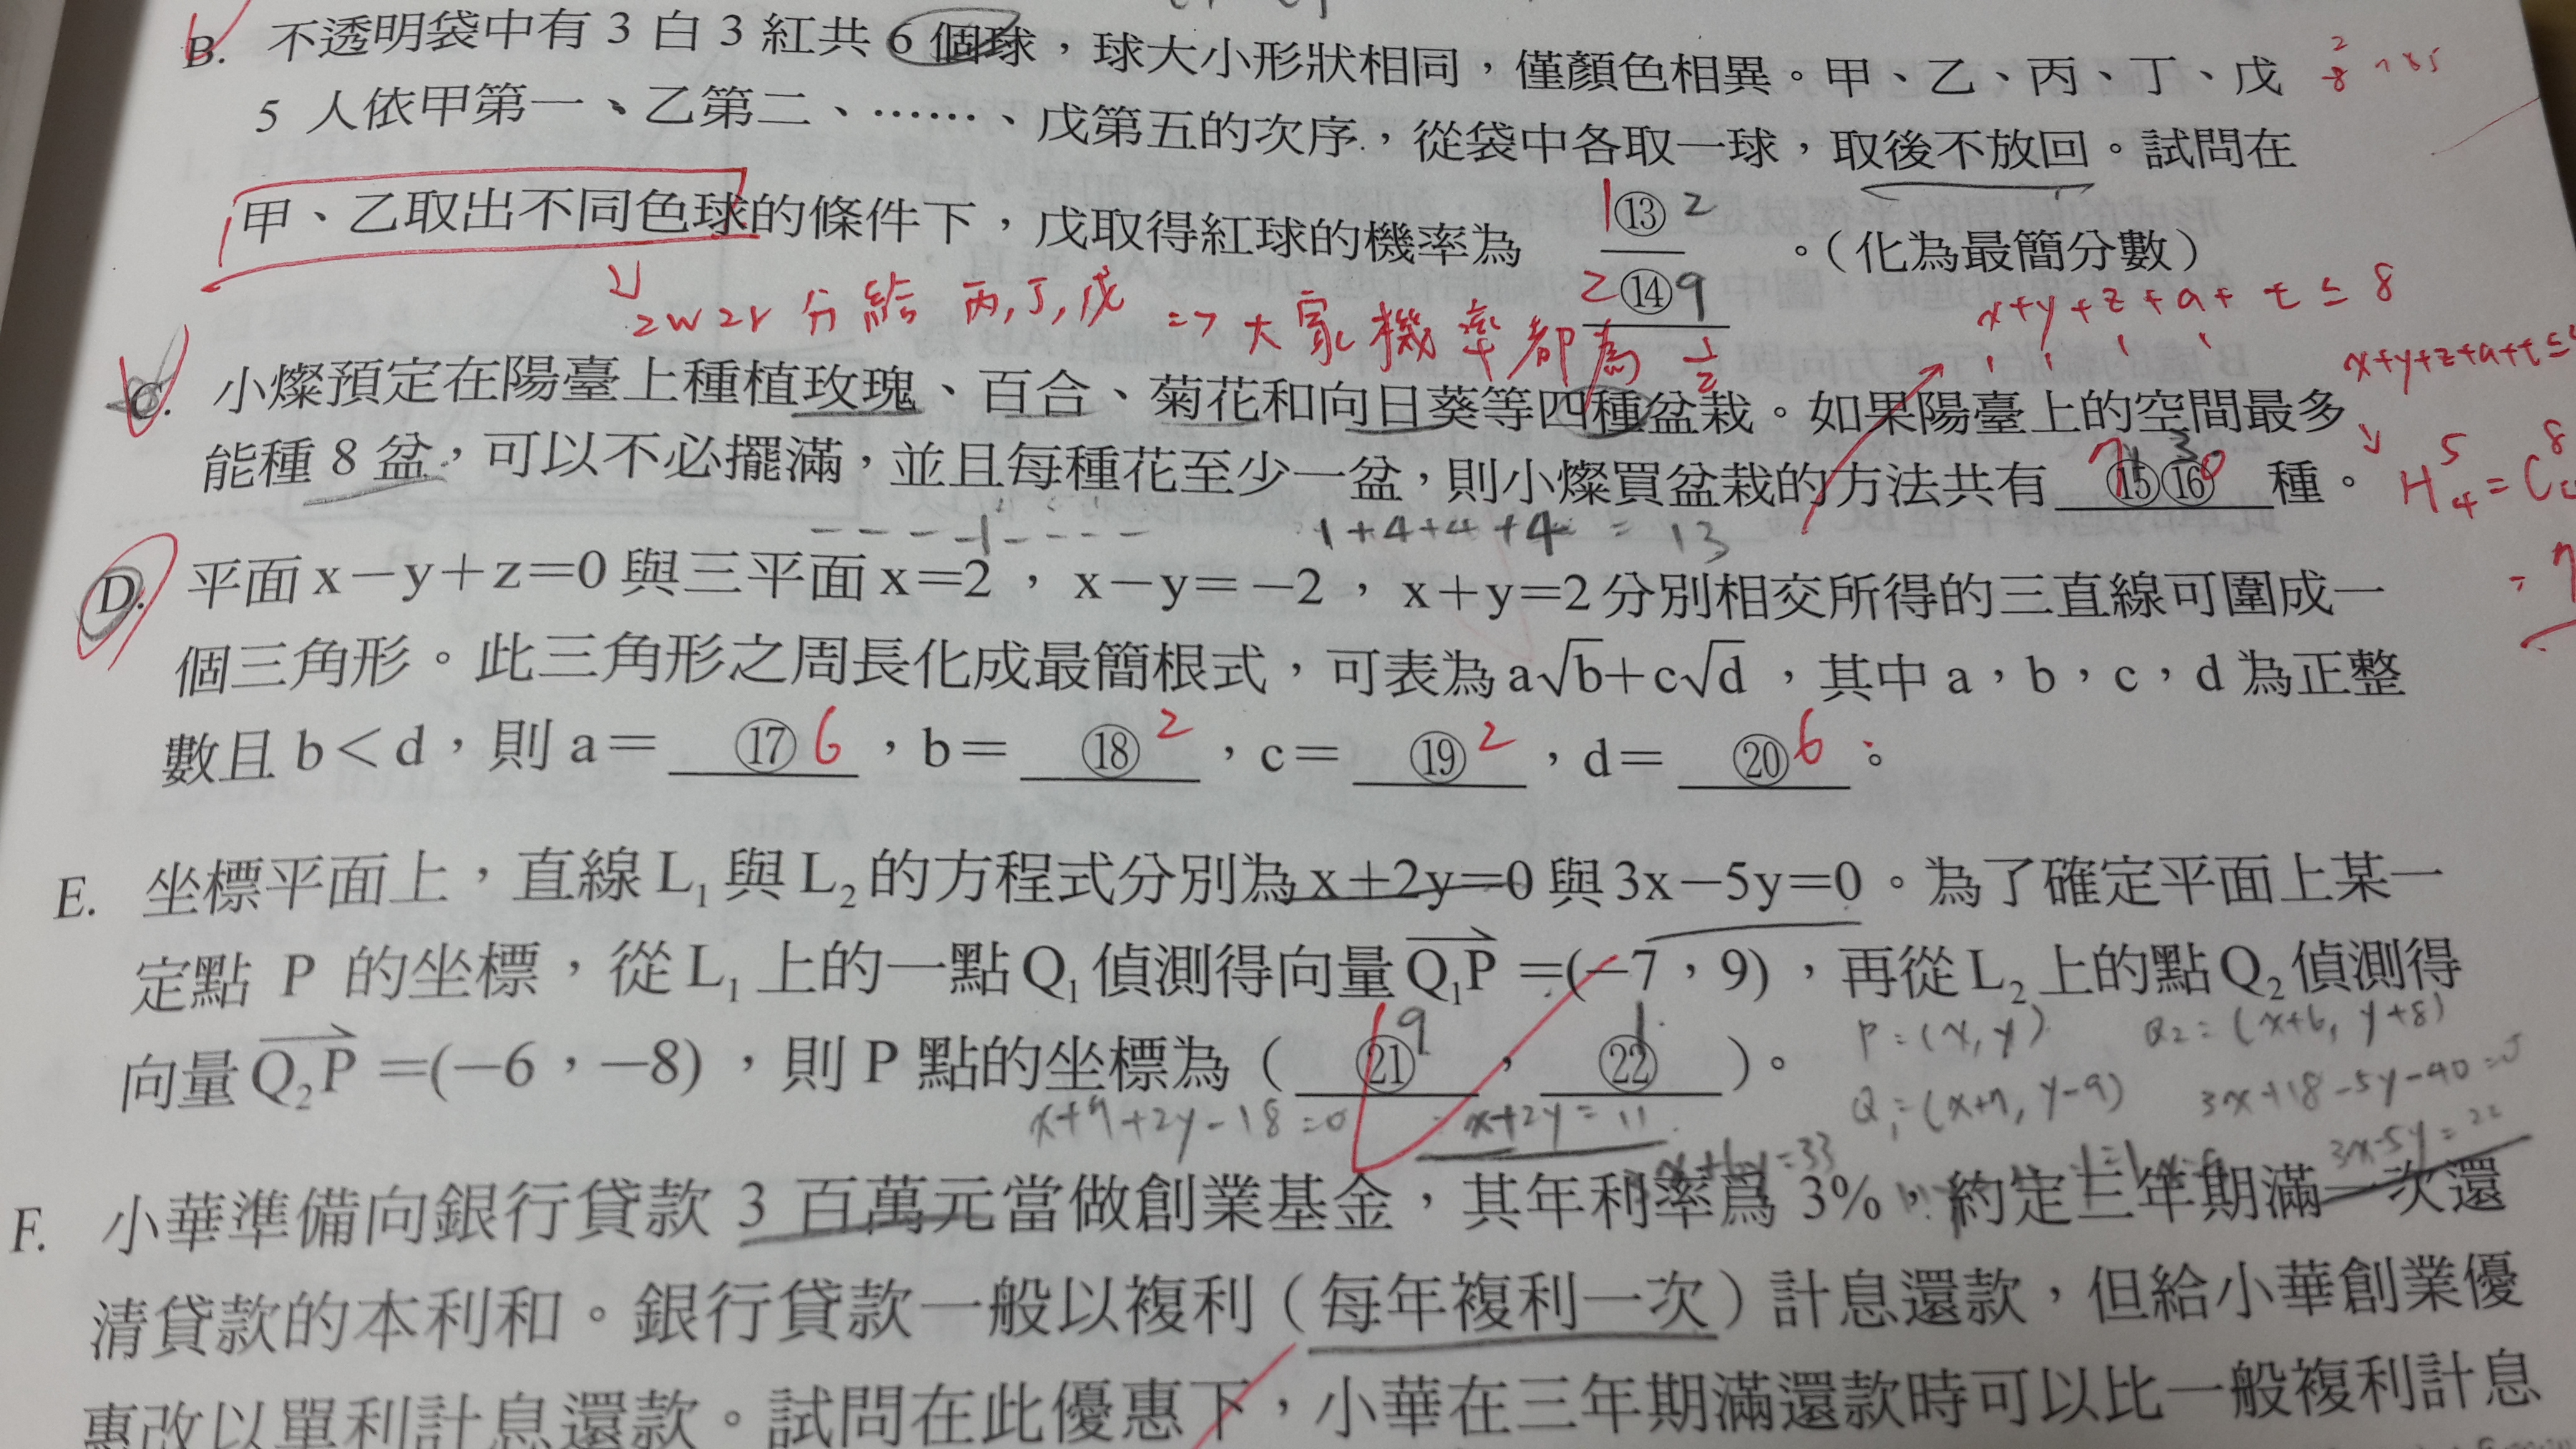 B. 不透明袋中有 3 白 3 紅共 6 個球，球大小形狀相同，僅顏色相異。甲、乙、丙、丁、戊
5 人依甲第一、乙第二、……、戊第五的次序，從袋中各取一球，取後不放回。試問在
甲、乙取出不同色球的條件下，戊取得紅球的機率為 ⑬/⑭ 。（化為最簡分數）
1 2
2 9
2w2r 分給 丙,丁,戊 => 大家機率都為 1/2
x+y+z+a+t≤8
C. 小燦預定在陽臺上種植玫瑰、百合、菊花和向日葵等四種盆栽。如果陽臺上的空間最多
能種 8 盆，可以不必擺滿，並且每種花至少一盆，則小燦買盆栽的方法共有 ⑮⑯ 種。
1+4+4+4 = 13
D. 平面 x－y＋z＝0 與三平面 x＝2，x－y＝－2，x＋y＝2 分別相交所得的三直線可圍成一
個三角形。此三角形之周長化成最簡根式，可表為 a√b＋c√d，其中 a，b，c，d 為正整
數且 b＜d，則 a＝ ⑰ 6 ，b＝ ⑱ 2 ，c＝ ⑲ 2 ，d＝ ⑳ 6 。
E. 坐標平面上，直線 L₁ 與 L₂ 的方程式分別為 x＋2y＝0 與 3x－5y＝0。為了確定平面上某一
定點 P 的坐標，從 L₁ 上的一點 Q₁ 偵測得向量 Q₁P ＝(－7，9)，再從 L₂ 上的點 Q₂ 偵測得
向量 Q₂P ＝(－6，－8)，則 P 點的坐標為（ ㉑ 9 ， ㉒ 1 ）。
P=(x,y) Q₂=(x+6, y+8)
Q₁=(x+7, y-9) 3x+18-5y-40=0
x+7+2y-18=0 x+2y=11
3x-5y=22
F. 小華準備向銀行貸款 3 百萬元當做創業基金，其年利率為 3%，約定三年期滿一次還
清貸款的本利和。銀行貸款一般以複利（每年複利一次）計息還款，但給小華創業優
惠改以單利計息還款。試問在此優惠下，小華在三年期滿還款時可以比一般複利計息